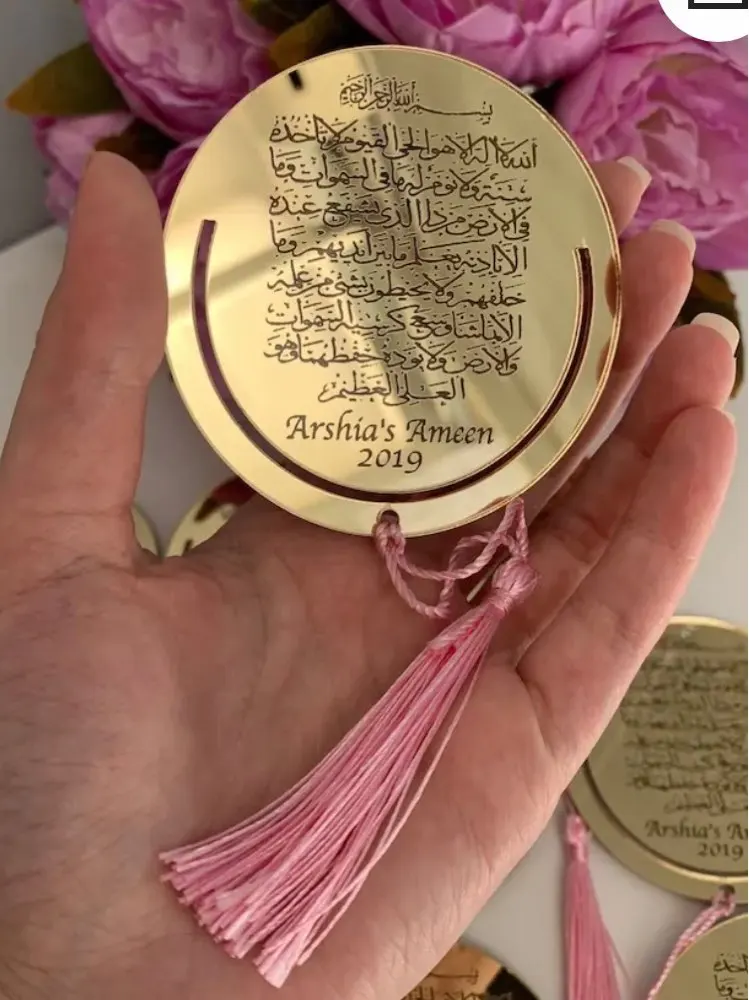 بسم الله الرحمن الرحيم
الله لا إله إلا هو الحي القيوم لا تأخذه
سنة ولا نوم له ما في السموات وما
في الأرض من ذا الذي يشفع عنده
إلا بإذنه يعلم ما بين أيديهم وما
خلفهم ولا يحيطون بشيء من علمه
إلا بما شاء وسع كرسيه السموات
والأرض ولا يؤده حفظهما وهو
العلي العظيم
Arshia's Ameen
2019
Arshia's A
2019